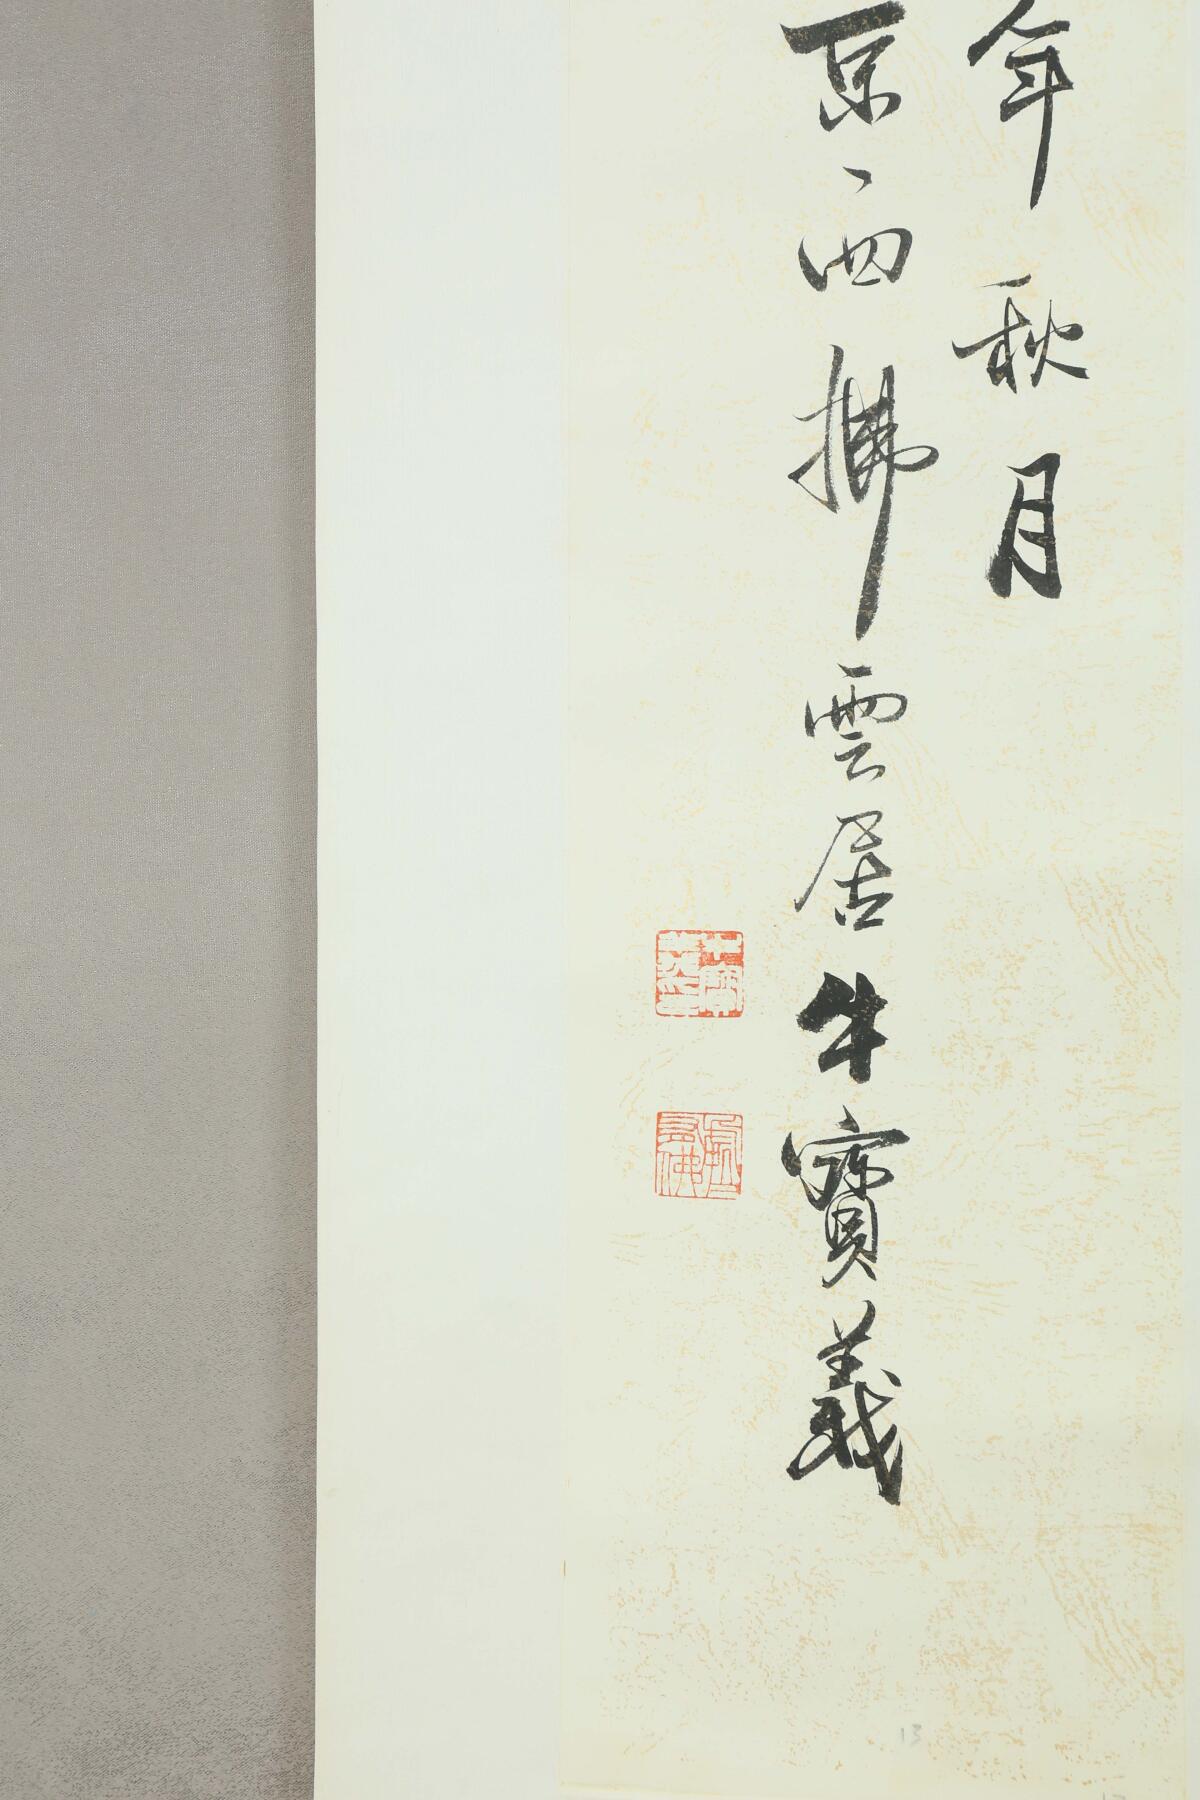 年秋月
京西拂雲居牛寶義
13